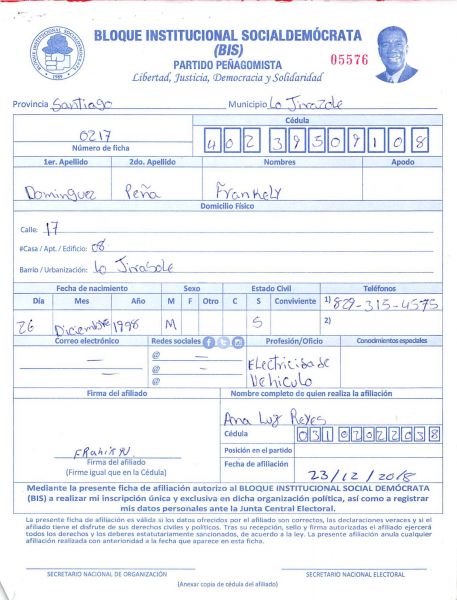 BLOQUE INSTITUCIONAL SOCIALDEMÓCRATA
(BIS)
PARTIDO PEÑAGOMISTA
Libertad, Justicia, Democracia y Solidaridad
05576
BLOQUE INSTITUCIONAL SOCIALDEMOCRATA
1989
Provincia Santiago Municipio Lo Jirazole
0217 Cédula
Número de ficha 402 3950910 8
1er. Apellido 2do. Apellido Nombres Apodo
Dominguez Peña Frankely
Domicilio Físico
Calle: 17
#Casa / Apt. / Edificio: 08
Barrio / Urbanización: Lo Jirasole
Fecha de nacimiento Sexo Estado Civil Teléfonos
Día Mes Año M F Otro C S Conviviente 1) 829-315-4575
26 Diciembre 1998 M S 2)
Correo electrónico Redes sociales Profesión/Oficio Conocimientos especiales
@ —
@ —
@
Electricida de
Vehiculo
Firma del afiliado Nombre completo de quien realiza la afiliación
Ana Luz Reyes
Cédula 031 0202203 8
Posición en el partido
Firma del afiliado
(Firme igual que en la Cédula)
Fecha de afiliación 23/12/2018
Mediante la presente ficha de afiliación autorizo al BLOQUE INSTITUCIONAL SOCIAL DEMÓCRATA
(BIS) a realizar mi inscripción única y exclusiva en dicha organización política, así como a registrar
mis datos personales ante la Junta Central Electoral.
La presente ficha de afiliación es válida si los datos ofrecidos por el afiliado son correctos, las declaraciones veraces y si el
afiliado tiene el disfrute de sus derechos civiles y políticos. Tras su recepción, sello y firma autorizadas el afiliado ejercerá
todos los derechos y los deberes estatutariamente sancionados, de acuerdo a la ley. La presente afiliación anula cualquier
afiliación realizada con anterioridad a la fecha que aparece en esta ficha.
SECRETARIO NACIONAL DE ORGANIZACIÓN SECRETARIO NACIONAL ELECTORAL
(Anexar copia de cédula del afiliado)